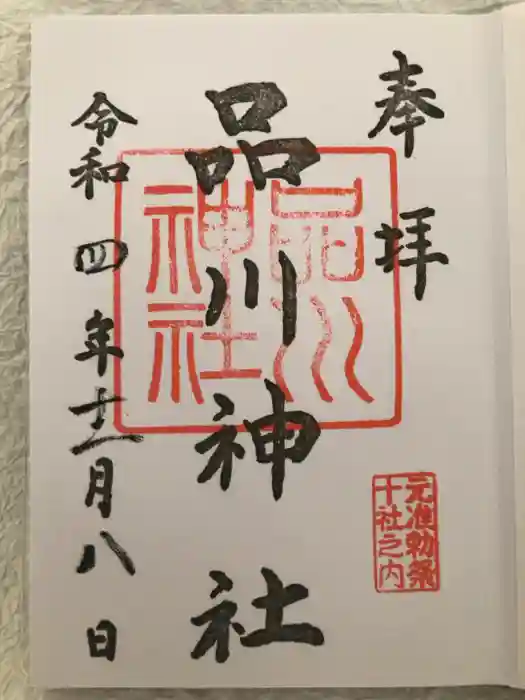 奉拝
品川神社
品川神社
元准勅祭
十社之内
令和四年十二月八日